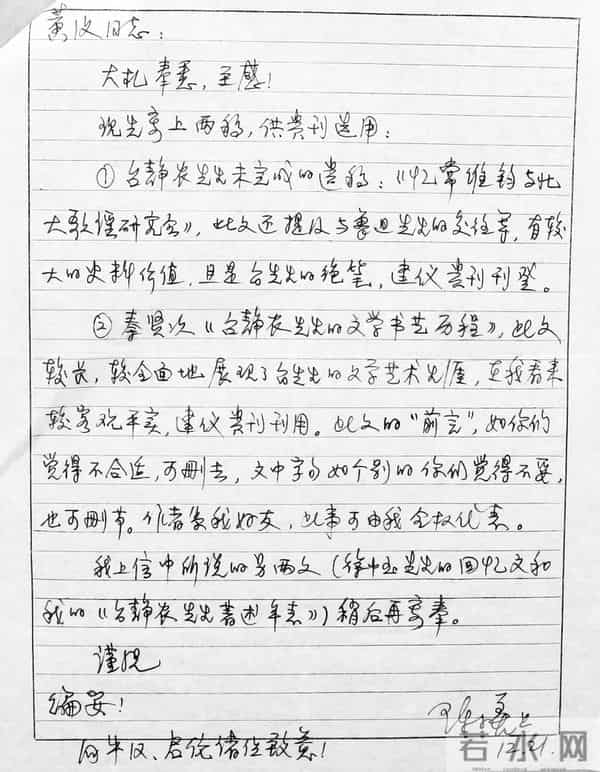 黄汶同志:
大札奉悉,至感!
现先寄上两稿,供贵刊选用:
①台静农先生未完成的遗稿:《忆常维钧与北
大歌谣研究会》,此文还提及与鲁迅先生的交往等,有较
大的史料价值,且是台先生的绝笔,建议贵刊刊登。
②秦贤次《台静农先生的文学书艺历程》,此文
较长,较全面地展现了台先生的文学艺术生涯,在我看来
较客观平实,建议贵刊刊用。此文的“前言”,如你们
觉得不合适,可删去,文中字句如个别的你们觉得不妥,
也可删节。作者系我好友,此事可由我全权代表。
我上信中所说的另两文(徐中玉先生的回忆文和
我的《台静农先生著述年表》)稍后再寄奉。
谨祝
编安!
陈子善上
12.21.
向牛汉、君伦诸位致意!
若水网